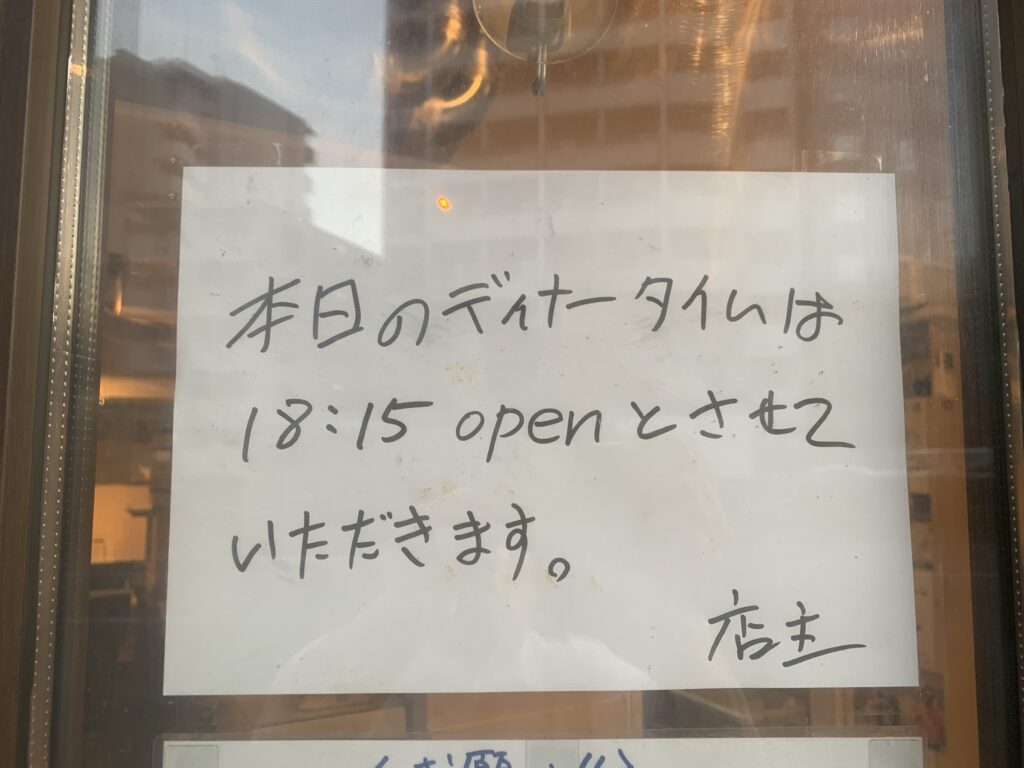 本日のディナータイムは
18:15 openとさせて
いただきます。
店主
お願い